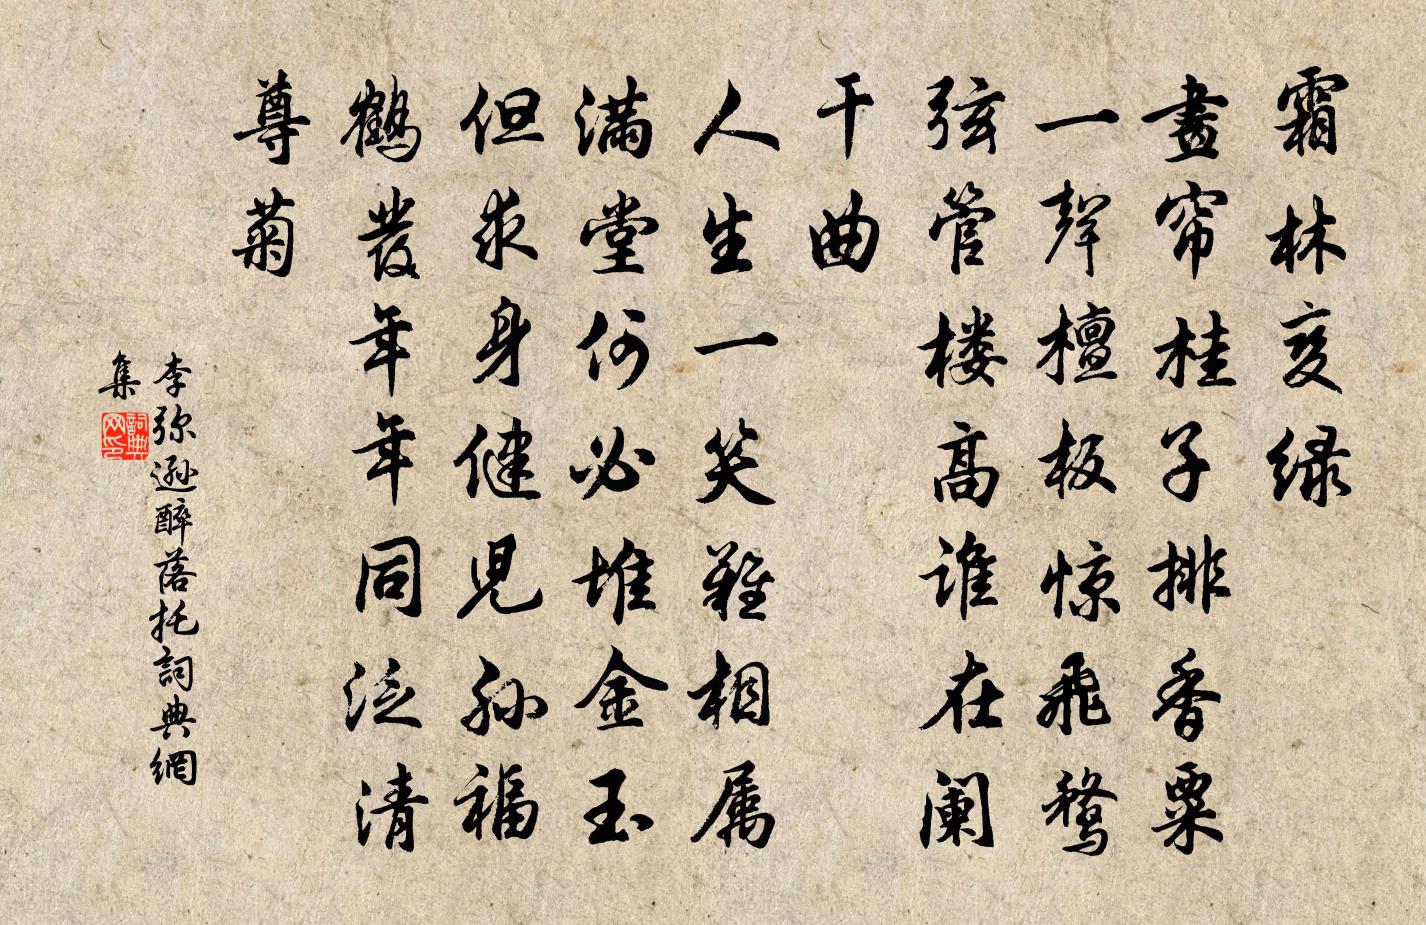 霜林变绿
畫帘桂子排香粟
一聲檀板惊飛鶩
弦管楼高谁在阑
干曲
人生一笑難相属
满堂何必堆金玉
但求身健児孙福
鶴發年年同泛清
尊菊
李弥遜醉落托詞典網
集
詞典
网印